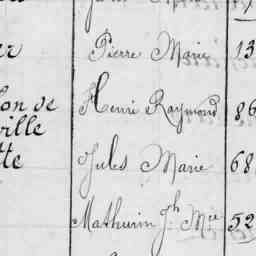 er Pierre Marie 13
on de Henri Raymond 86
ville
tte Jules Marie 68
Mathurin Jh Mie 52